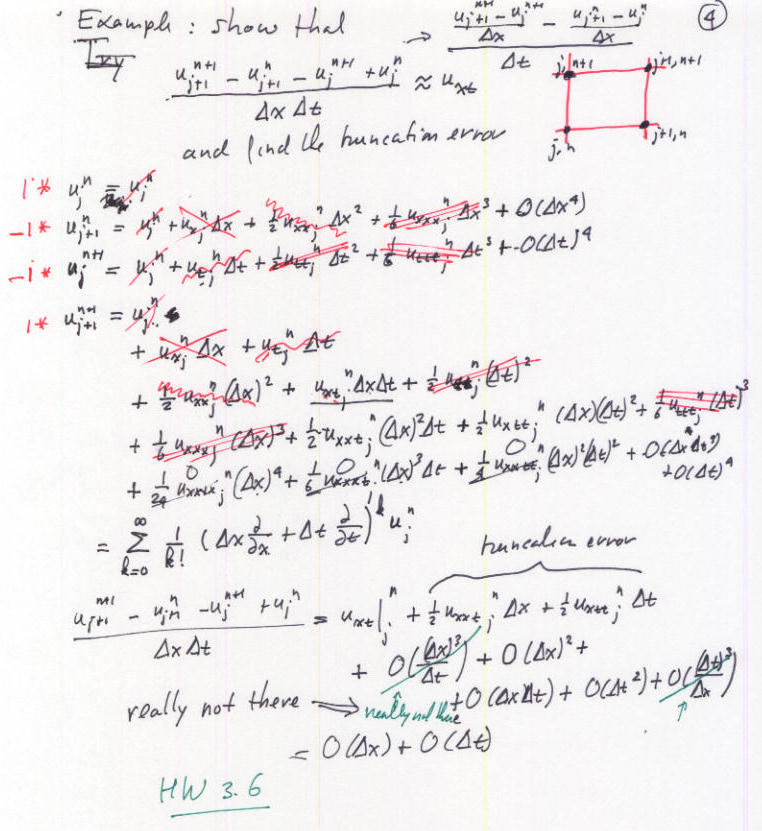 Example : show that
④
T_xy
→ \frac{\frac{u_{j+1}^{n+1} - u_j^{n+1}}{Δx} - \frac{u_{j+1}^n - u_j^n}{Δx}}{Δt}
\frac{u_{j+1}^{n+1} - u_{j+1}^n - u_j^{n+1} + u_j^n}{Δx Δt} ≈ u_{xt}
j, n+1
j+1, n+1
j, n
j+1, n
and find the truncation error
1* u_j^n = u_j^n
-1* u_{j+1}^n = u_j^n + u_{x j}^n Δx + \frac{1}{2} u_{xx j}^n Δx^2 + \frac{1}{6} u_{xxx j}^n Δx^3 + O(Δx^4)
-1* u_j^{n+1} = u_j^n + u_{t j}^n Δt + \frac{1}{2} u_{tt j}^n Δt^2 + \frac{1}{6} u_{ttt j}^n Δt^3 + O(Δt)^4
1* u_{j+1}^{n+1} = u_j^n
+ u_{x j}^n Δx + u_{t j}^n Δt
+ \frac{1}{2} u_{xx j}^n (Δx)^2 + u_{xt j}^n ΔxΔt + \frac{1}{2} u_{tt j}^n (Δt)^2
+ \frac{1}{6} u_{xxx j}^n (Δx)^3 + \frac{1}{2} u_{xxt j}^n (Δx)^2 Δt + \frac{1}{2} u_{xtt j}^n (Δx)(Δt)^2 + \frac{1}{6} u_{ttt j}^n (Δt)^3
+ \frac{1}{24} u_{xxxx j}^n (Δx)^4 + \frac{1}{6} u_{xxxt j}^n (Δx)^3 Δt + \frac{1}{4} u_{xxtt j}^n (Δx)^2 (Δt)^2 + O(Δx Δt^3)
+ O(Δt)^4
= \sum_{k=0}^{∞} \frac{1}{k!} (Δx \frac{∂}{∂x} + Δt \frac{∂}{∂t})^k u_j^n
truncation error
\frac{u_{j+1}^{n+1} - u_{j+1}^n - u_j^{n+1} + u_j^n}{Δx Δt} = u_{xt}|_j^n + \frac{1}{2} u_{xxt j}^n Δx + \frac{1}{2} u_{xtt j}^n Δt
+ O(\frac{(Δx)^3}{Δt}) + O(Δx)^2 +
really not there ⟹ really not there + O(ΔxΔt) + O(Δt^2) + O(\frac{(Δt)^3}{Δx})
= O(Δx) + O(Δt)
HW 3.6